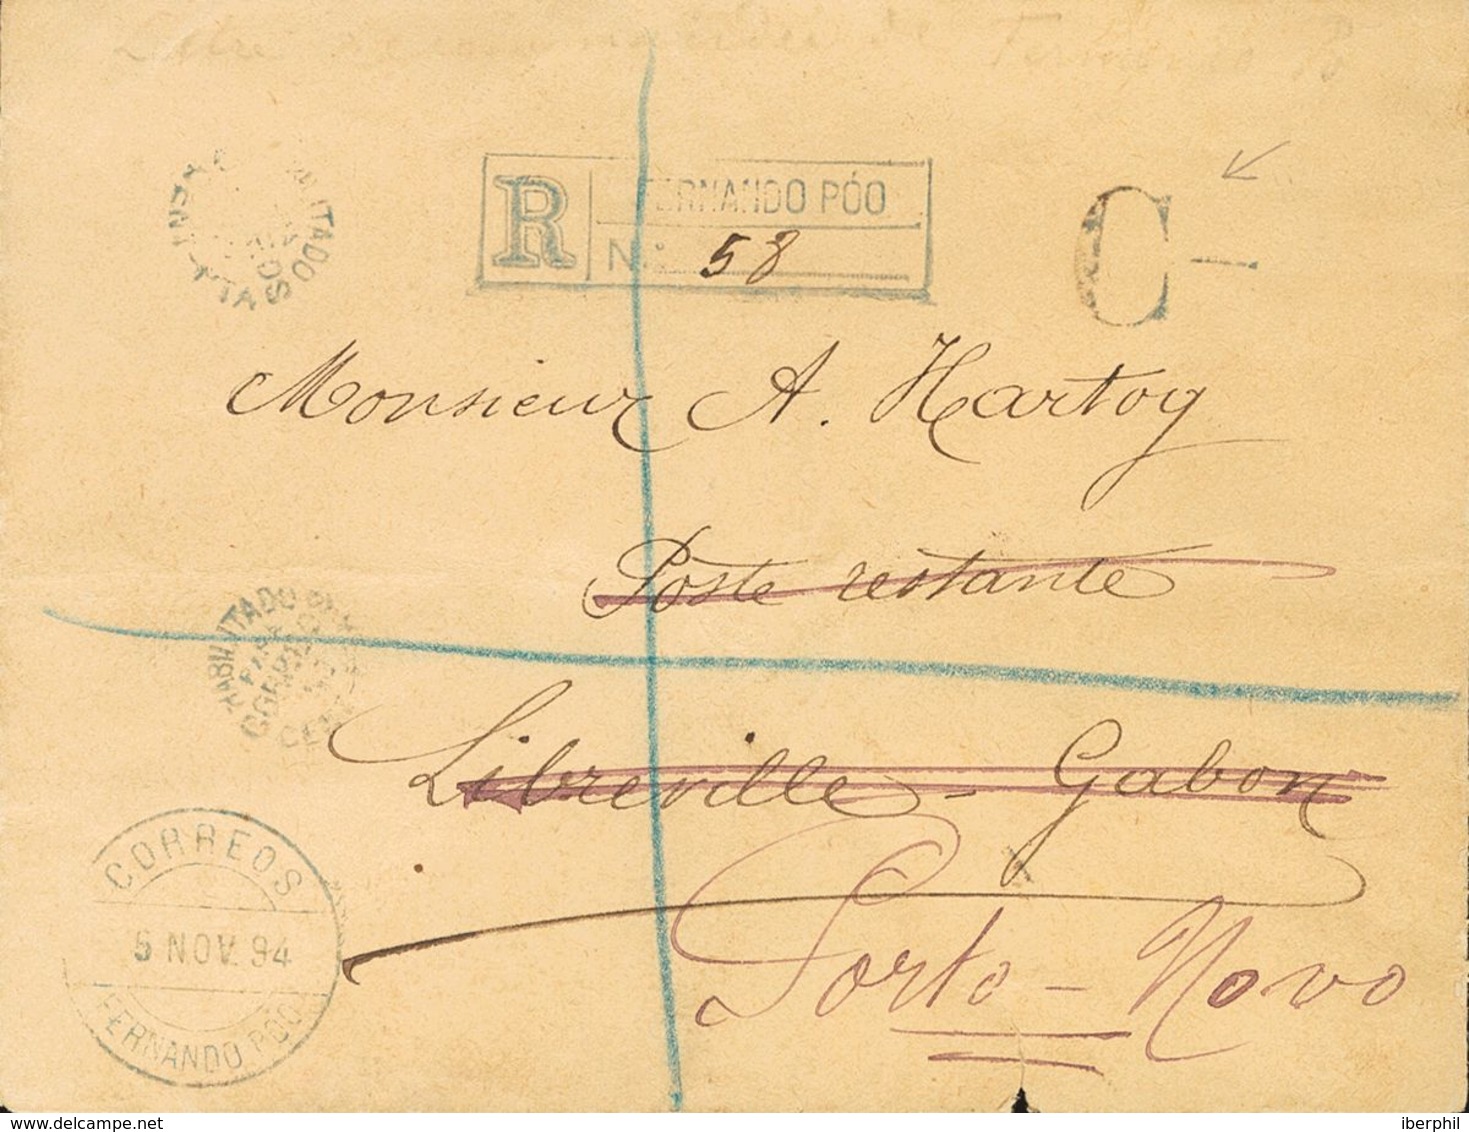 Lettre recommandée de Fernando Po
HABILITADO
R FERNANDO PÓO
N.º 58
C
Monsieur A. Hartog
Poste restante
HABILITADO
PARA
CORREOS
Libreville - Gabon
CORREOS
5 NOV. 94
FERNANDO PÓO
Porto-Novo
delcampe.net
iberphil